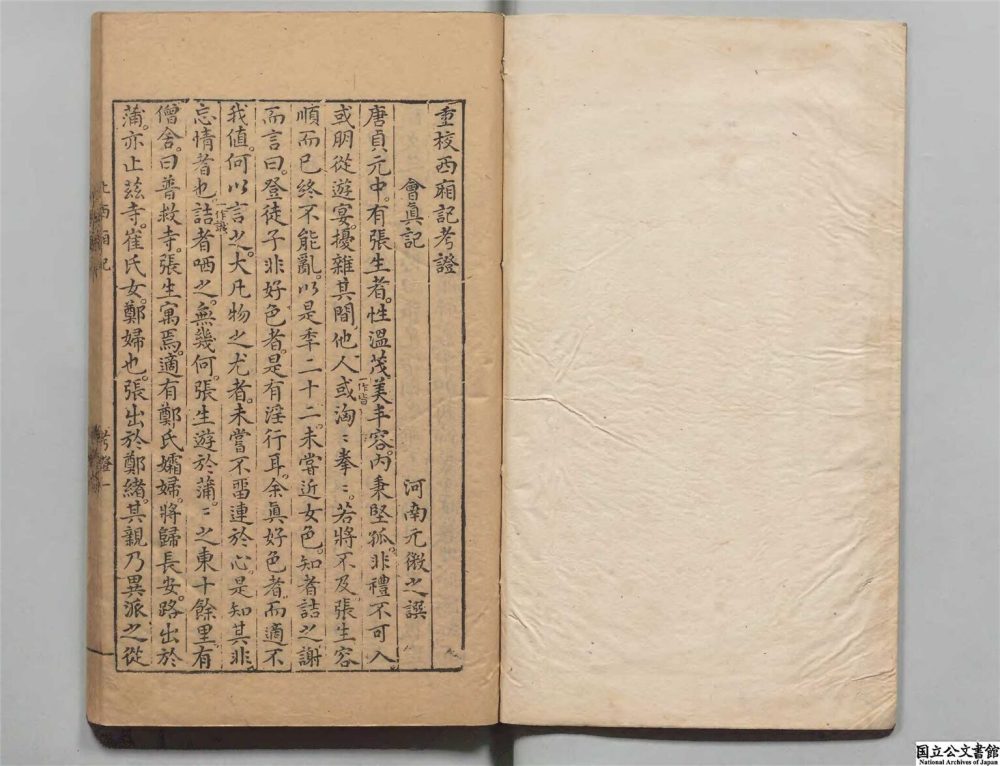 重校西廂記考證
會眞記
河南元微之譔
唐貞元中。有張生者。性溫茂美丰容。內秉堅孤。非禮不可入
或朋從遊宴。擾雜其間。他人或一作皆洶〻拳〻。若將不及。張生容
順而已終不能亂。以是年二十二。未嘗近女色。知者詰之謝
而言曰。登徒子非好色者。是有淫行耳。余眞好色者。而適不
我值。何以言一作識之。大凡物之尤者。未嘗不畱連於心。是知其非
忘情者也。詰者哂之。無幾何。張生遊於蒲。〻之東十餘里。有
僧舍。曰普救寺。張生寓焉。適有鄭氏孀婦。將歸長安。路出於
蒲。亦止茲寺。崔氏女。鄭婦也。張出於鄭緒。其親乃異派之從
北西廂記
考證
一
国立公文書館
National Archives of Japan